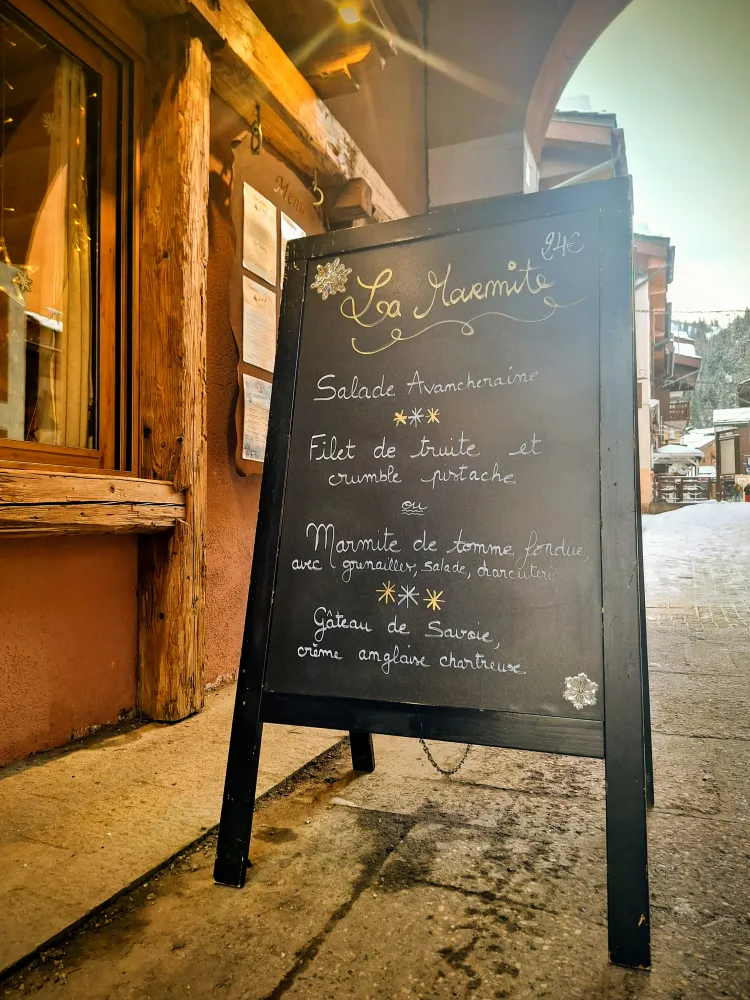 Menu
24€
La Marmite
Salade Avancheraine
Filet de truite et
crumble pistache
ou
Marmite de tomme fondue,
avec grenailles, salade, charcuterie
Gâteau de Savoie,
crème anglaise chartreuse